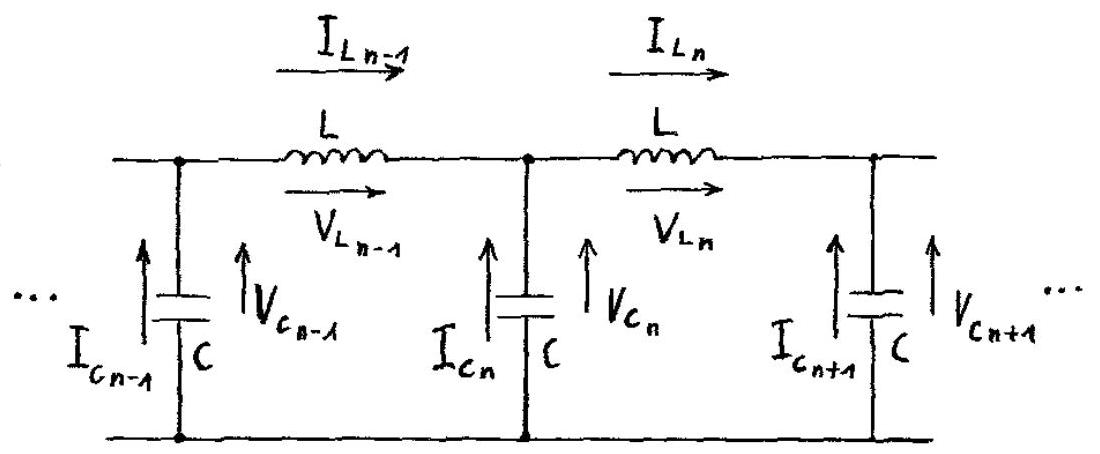 I_{L_{n-1}} I_{L_n}
L L
V_{L_{n-1}} V_{L_n}
... I_{C_{n-1}} V_{C_{n-1}} C I_{C_n} V_{C_n} C I_{C_{n+1}} V_{C_{n+1}} C ...